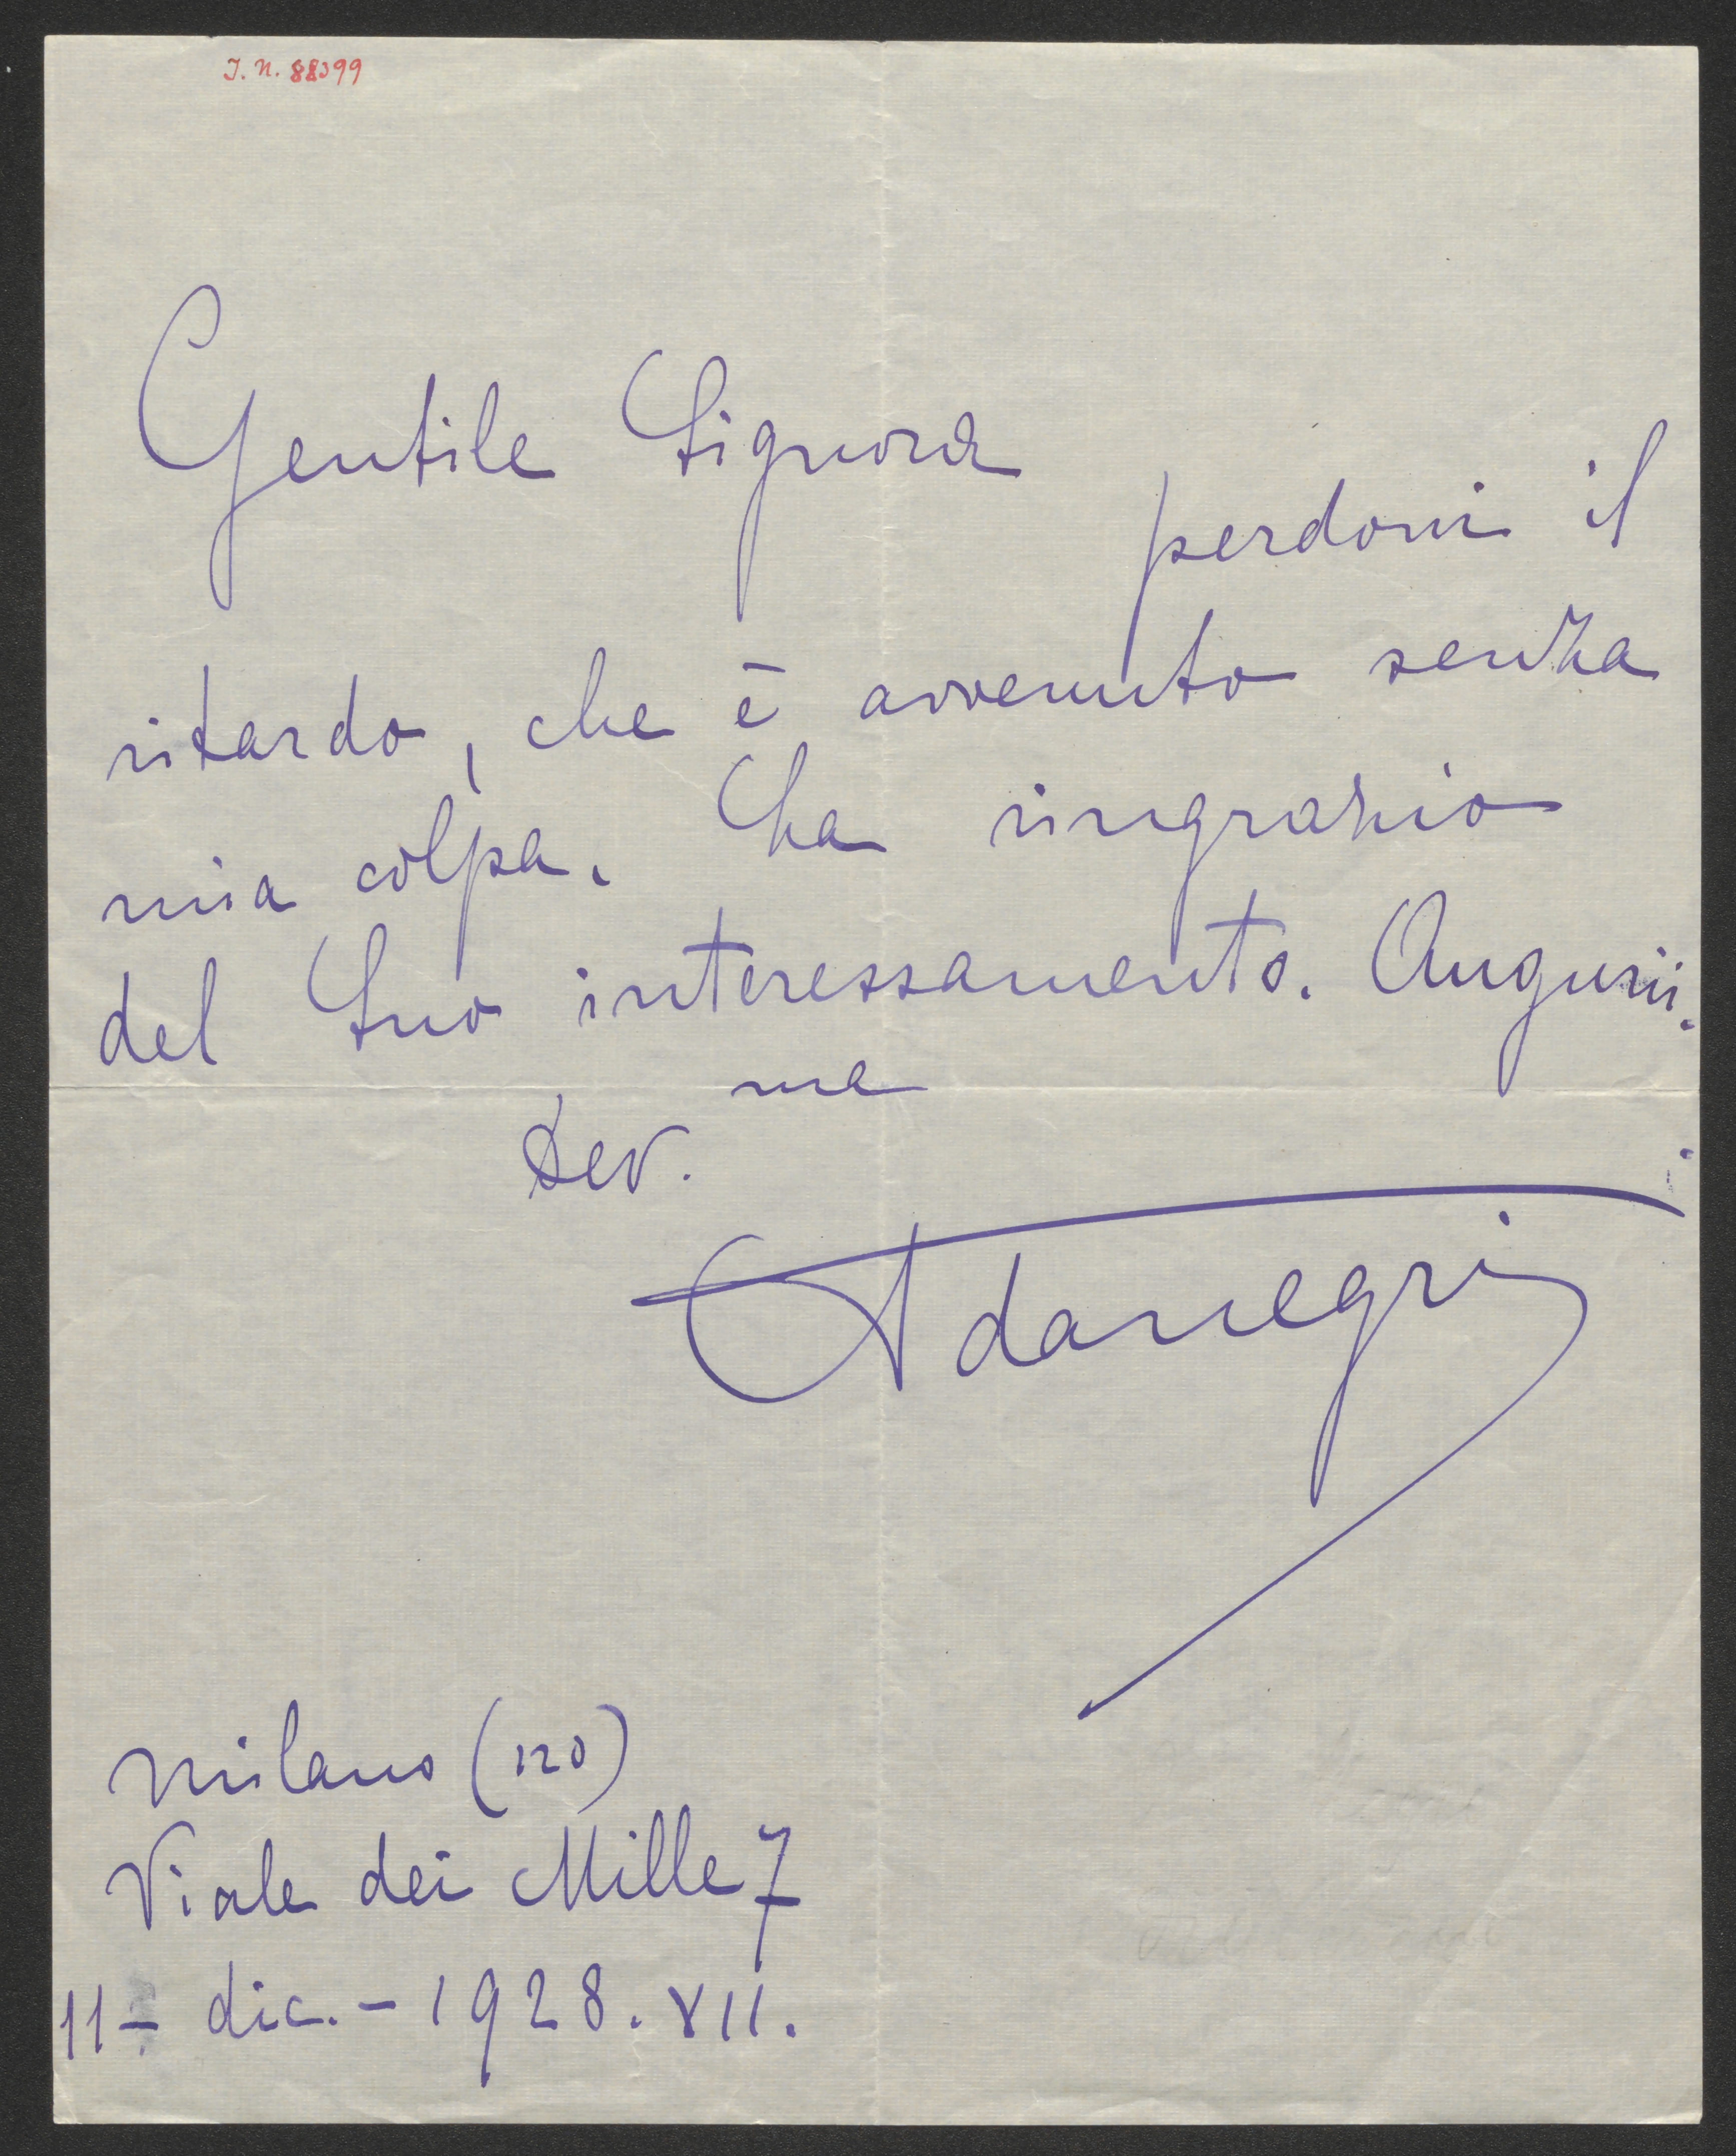 Gentile Signora
perdoni il
ritardo, che è avvenuto senza
mia colpa. La ringrazio
del Suo interessamento. Augurii.
Dev. ma
Adanegri
Milano (120)
Viale dei Mille 7
11 - dic. - 1928. XII.